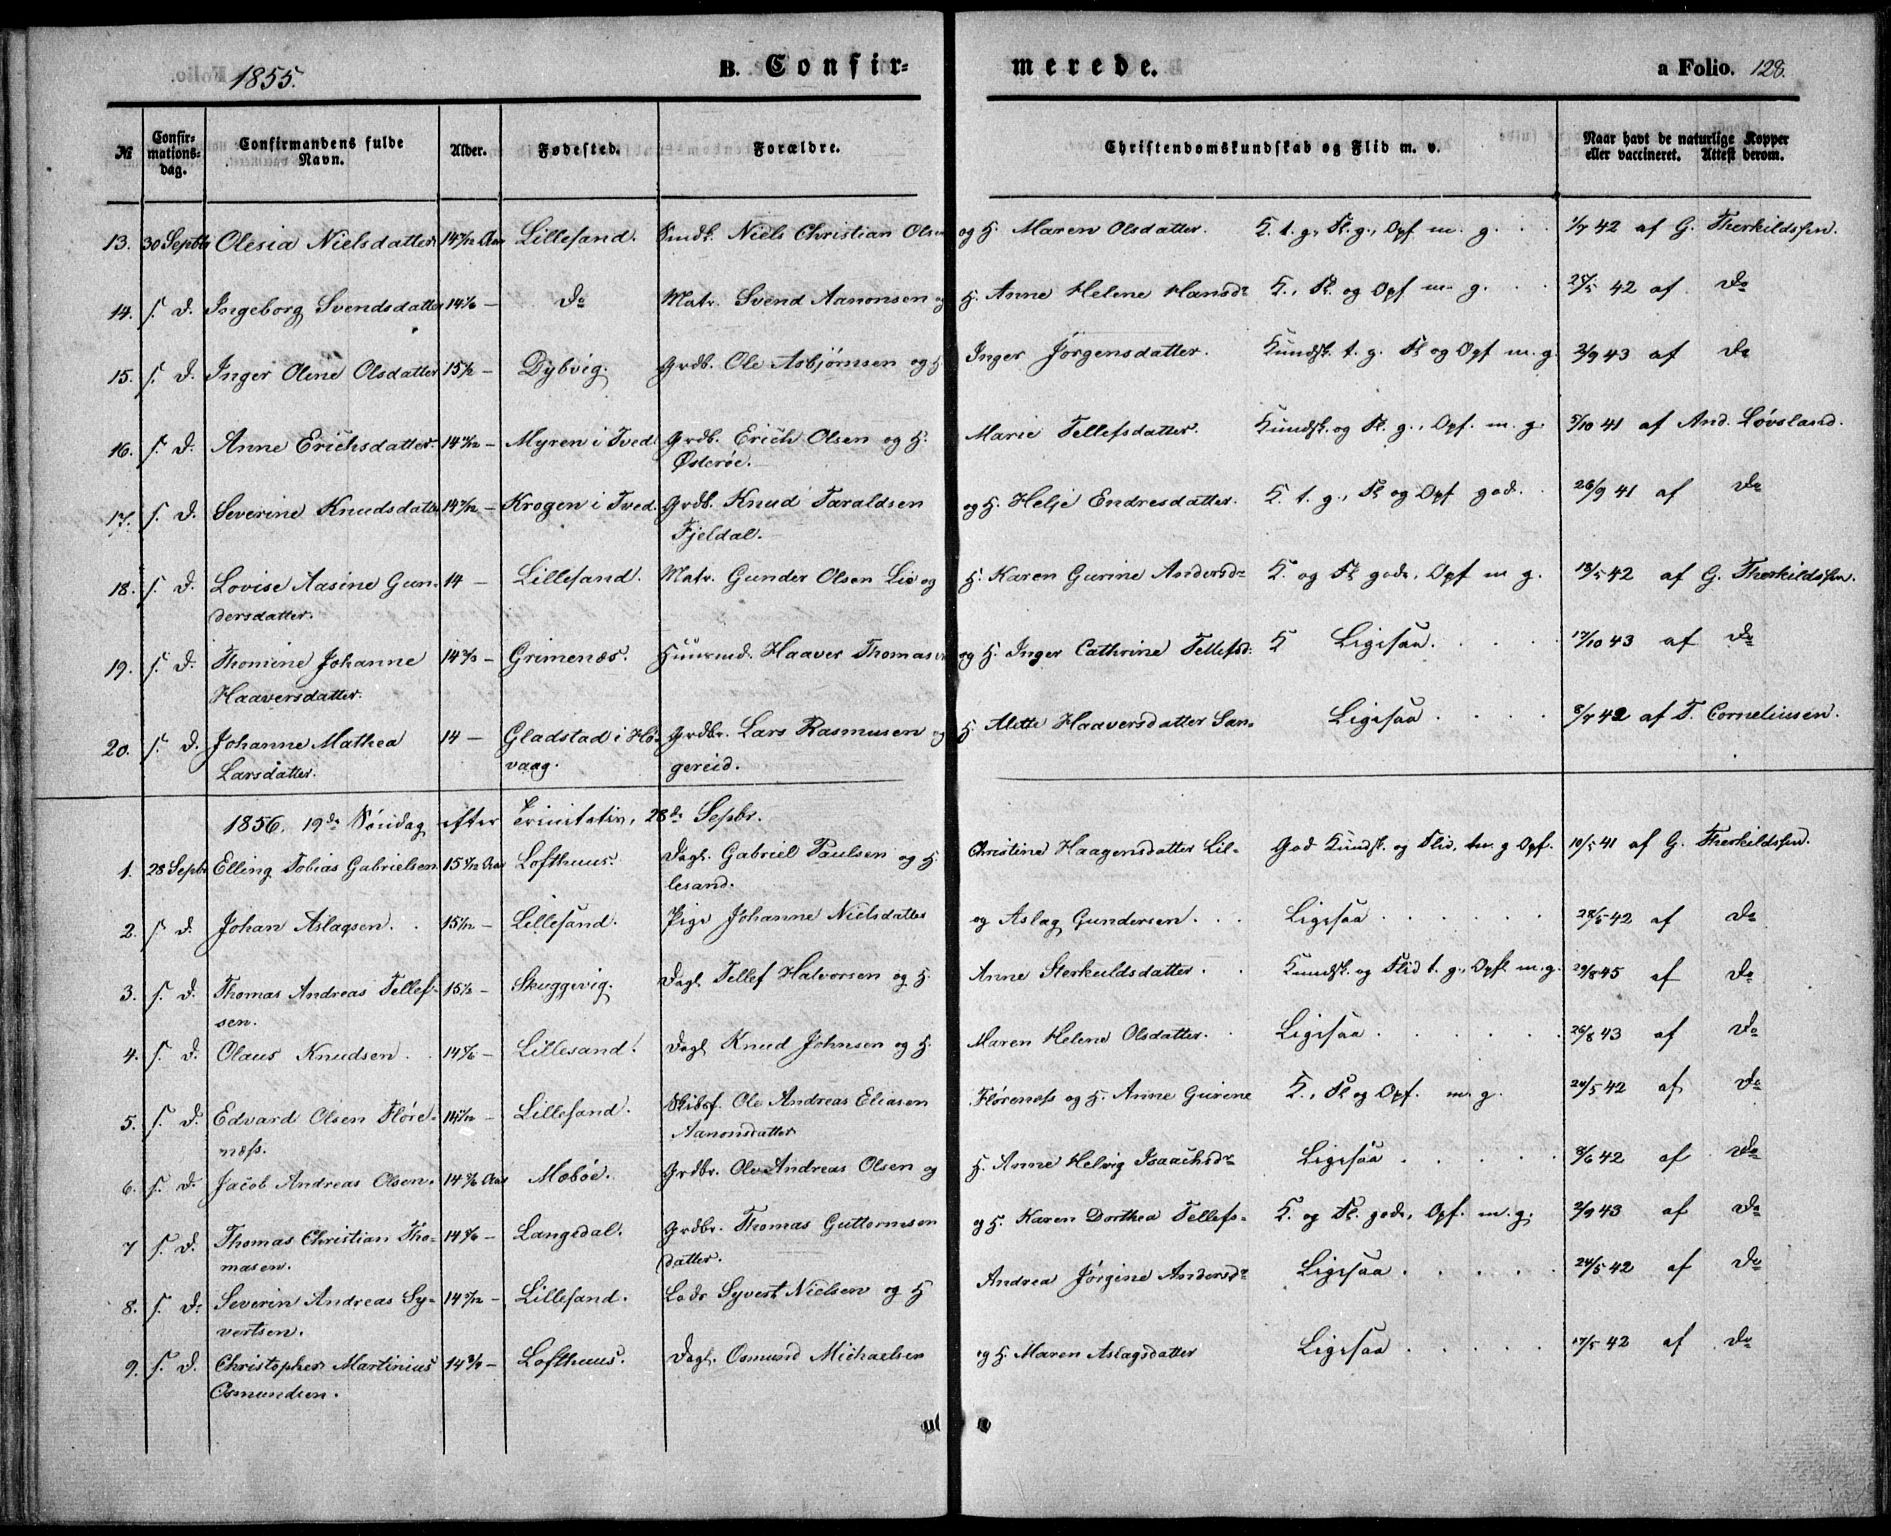 1855.
B. Confir-
merede.
a Folio. 128.
№
Confir-
mations-
dag.
Confirmandens fulde
Navn.
Alder.
Fødested.
Forældre.
Christendomskundskab og Flid m. v.
Naar havt de naturlige Kopper
eller vaccineret. Attest derom.
13. 30 Septbr Olesia Nielsdatter Aar Lillesand. Smdk. Niels Christian Olsen og H. Maren Olsdatter. K. t. g., Fl. g., Opf m. g. 1/7 42 af G. Therkildssen.
14. s. D. Ingeborg Svendsdatter — Do Matr. Svend Aanonsen og H. Anne Helene Hansdr K., Fl. og Opf m. g. 25/5 42 af Do
15. s. D. Inger Oline Olsdatter 15½ — Dybvig. Grdb. Ole Asbjørnsen og H. Inger Jørgensdatter. Kundsk. t. g. Fl og Opf m. g. 2/9 43 af Do
16. s. D. Anne Erichsdatter. — Myren i Tved. Grdb. Erich Olsen og H. Marie Tellefsdatter. Kundsk. og Fl. g., Opf. m. g. 5/10 41 af And. Løvsland.
Østerøe.
17. s. D. Severine Knudsdatter — Krogen i Tved. Grdb. Knud Taraldsen og H. Helje Endresdatter. K. t. g., Fl og Opf god. 26/9 41 af Do
Fjeldal.
18. s. D. Lovise Aasine Gun- 14 — Lillesand. Matr. Gunder Olsen Lie og H. Karen Gurine Andersdr K. og Fl gode, Opf m g. 18/5 42 af G. Therkildssen.
dersdatter.
19. s. D. Thomine Johanne — Grimenæs. Huusmd. Haaver Thomasen og H. Inger Cathrine Tellefsd: K Ligesaa. 17/10 43 af Do
Haaversdatter.
20. s. D. Johanne Mathea 14 — Gladstad i Hø- Grdbr. Lars Rasmusen og H. Alette Haaversdatter San- Ligesaa 8/7 42 af T. Corneliusen.
Larsdatter. vaag. gereid.
1856. 19de Søndag efter Trinitatis, 28de Septbr.
1. 28 Septbr Elling Tobias Gabrielsen Aar Lofthuus. Dagl. Gabriel Paulsen og H Christine Haagensdatter Lil- God Kundsk. og Flid, m. g Opf. 10/5 41 af G. Therkildssen.
lesand.
2. s. D. Johan Aslagsen. — Lillesand. Pige Johanne Nielsdatter og Aslag Gundersen. Ligesaa 28/5 42 af Do
3. s. D. Thomas Andreas Tellef- 15½ — Skuggevig. Dagl. Tellef Halvorsen og H Anne Sterkuldsdatter Kundsk. og Flid t. g., Opf. m. g. 29/8 45 af Do
sen.
4. s. D. Olaus Knudsen. — Lillesand. Dagl Knud Johnsen og H. Maren Helene Olsdatter. Ligesaa 26/8 43 af Do
5. s. D. Edvard Olsen Fløre- — Lillesand. Skibsf. Ole Andreas Eliasen Flørenæss og H. Anne Gurine K., Fl og Opf. m. g. 24/5 42 af Do
næss. Aanonsdatter
6. s. D. Jacob Andreas Olsen. Aar Møbøe. Grdbr. Ole Andreas Olsen og H. Anne Helvig Isaachsdr Ligesaa 8/6 42 af Do
7 s. D. Thomas Christian Tho- — Langedal. Grdbr. Thomas Guttormsen og H. Karen Dorthea Tellefs- K. og Fl. gode, Opf. m. g. 2/9 43 af Do
masen. datter.
8. s. D. Severin Andreas Sy- — Lillesand. Lods Syvert Nielsen og H Andrea Jørgine Andersdr Ligesaa 24/5 42 af Do
vertsen.
9. s. D. Christopher Martinius — Lofthuus. Dagl. Osmund Michaelsen og H Maren Aslagsdatter Ligesaa 17/5 42 af Do
Osmundsen.